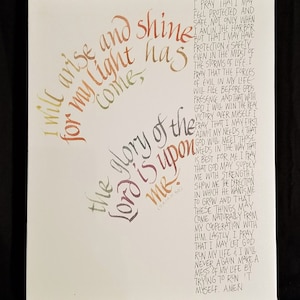 I will arise and shine
for my light has
come,
the glory of the
Lord is upon
me!
I PRAY THAT I MAY
FEEL PROTECTED AND
SAFE, NOT ONLY WHEN
I AM IN THE HARBOR,
BUT THAT I MAY HAVE
PROTECTION & SAFETY
EVEN IN THE MIDST OF
THE STORMS OF LIFE. I
PRAY THAT THE FORCES
OF EVIL IN MY LIFE
WILL FLEE BEFORE GOD'S
PRESENCE AND THAT WITH
GOD I WILL WIN THE REAL
VICTORY OVER MYSELF. I
MY NEEDS & THAT
GOD WILL MEET THOSE
NEEDS IN THE WAY THAT
IS BEST FOR ME. I PRAY
THAT GOD MAY
ME WITH STRENGTH &
SHOW ME THE DIRECTION
IN WHICH HE WANTS ME
TO GROW AND THAT
THESE THINGS WILL
COME NATURALLY FROM
MY COOPERATION WITH
HIM. LASTLY, I PRAY
THAT I MAY LET GOD
RUN MY LIFE & I WILL
NEVER AGAIN MAKE A
MESS OF MY LIFE BY
TRYING TO RUN IT
MYSELF. AMEN